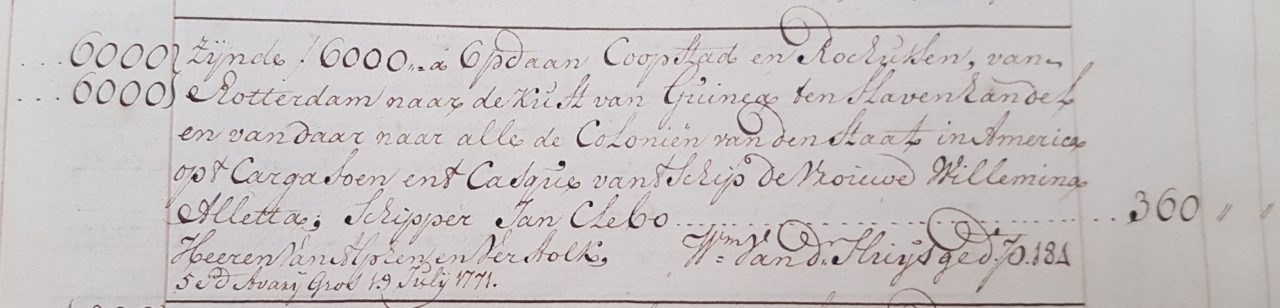 6000 } Zijnde ƒ 6000,,. á 6 pd aan Coopstad en Rochussen, van
6000 } Rotterdam naar de Kust van Guinea ten Slavenhandel
en vandaar naar alle de Coloniën van den Staat in America
op 't Cargasoen en 't Casque van 't Schip de Vrouwe Willemina
Alletta; Schipper Jan Clebo ........ 360 " "
Heeren Van Alphen en Verstolk, Wm Vand. Sluijs ged: fo. 181
5 Avarij Gros 19 Julij 1771.